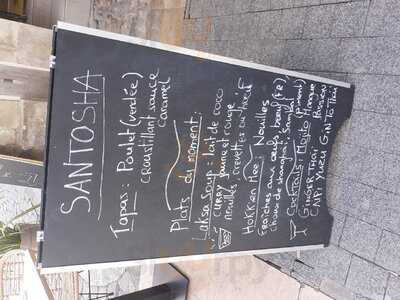 SANTOSHA
Tapas: Poulet (vendée)
croustillant sauce
caramel
Plats du moment:
Laksa Soup: lait de coco
curry jaune et rouge
nouilles, crevettes ou boeuf
Hokkien Mee: Nouilles
fraîches aux oeufs, boeuf (FR),
choux de shangaï, sambal
(piment)
Cocktails: Mojito Mangue
Passion
GINGER THAÏ
CNPI YUZU GIN TO THAÏ